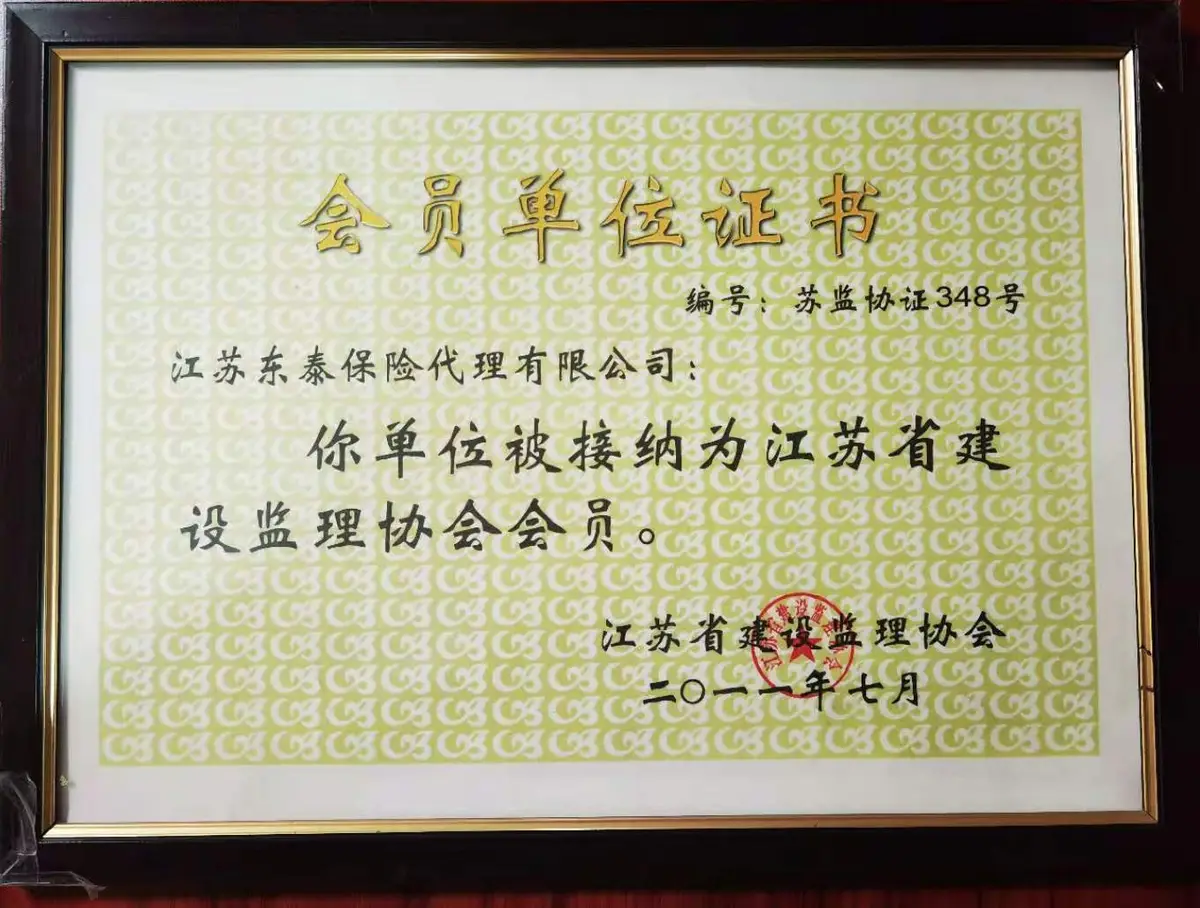 会员单位证书
编号：苏监协证348号
江苏东泰保险代理有限公司：
你单位被接纳为江苏省建
设监理协会会员。
江苏省建设监理协会
二〇一一年七月